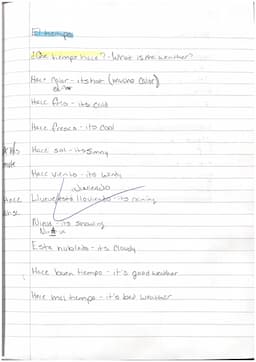 El tiempo
¿Que tiempo hace? - What is the weather?
Hace calor - its hot (mucho calor)
Hace frio - its cold
Hace fresco - its cool
Hace sol - its sunny
Hace viento - its windy
lloviendo
Llueve/está lloviendo - its raining
Nieva - its snowing
Esta nublado - its cloudy
Hace buen tiempo - it's good weather
Hace mal tiempo - it's bad weather